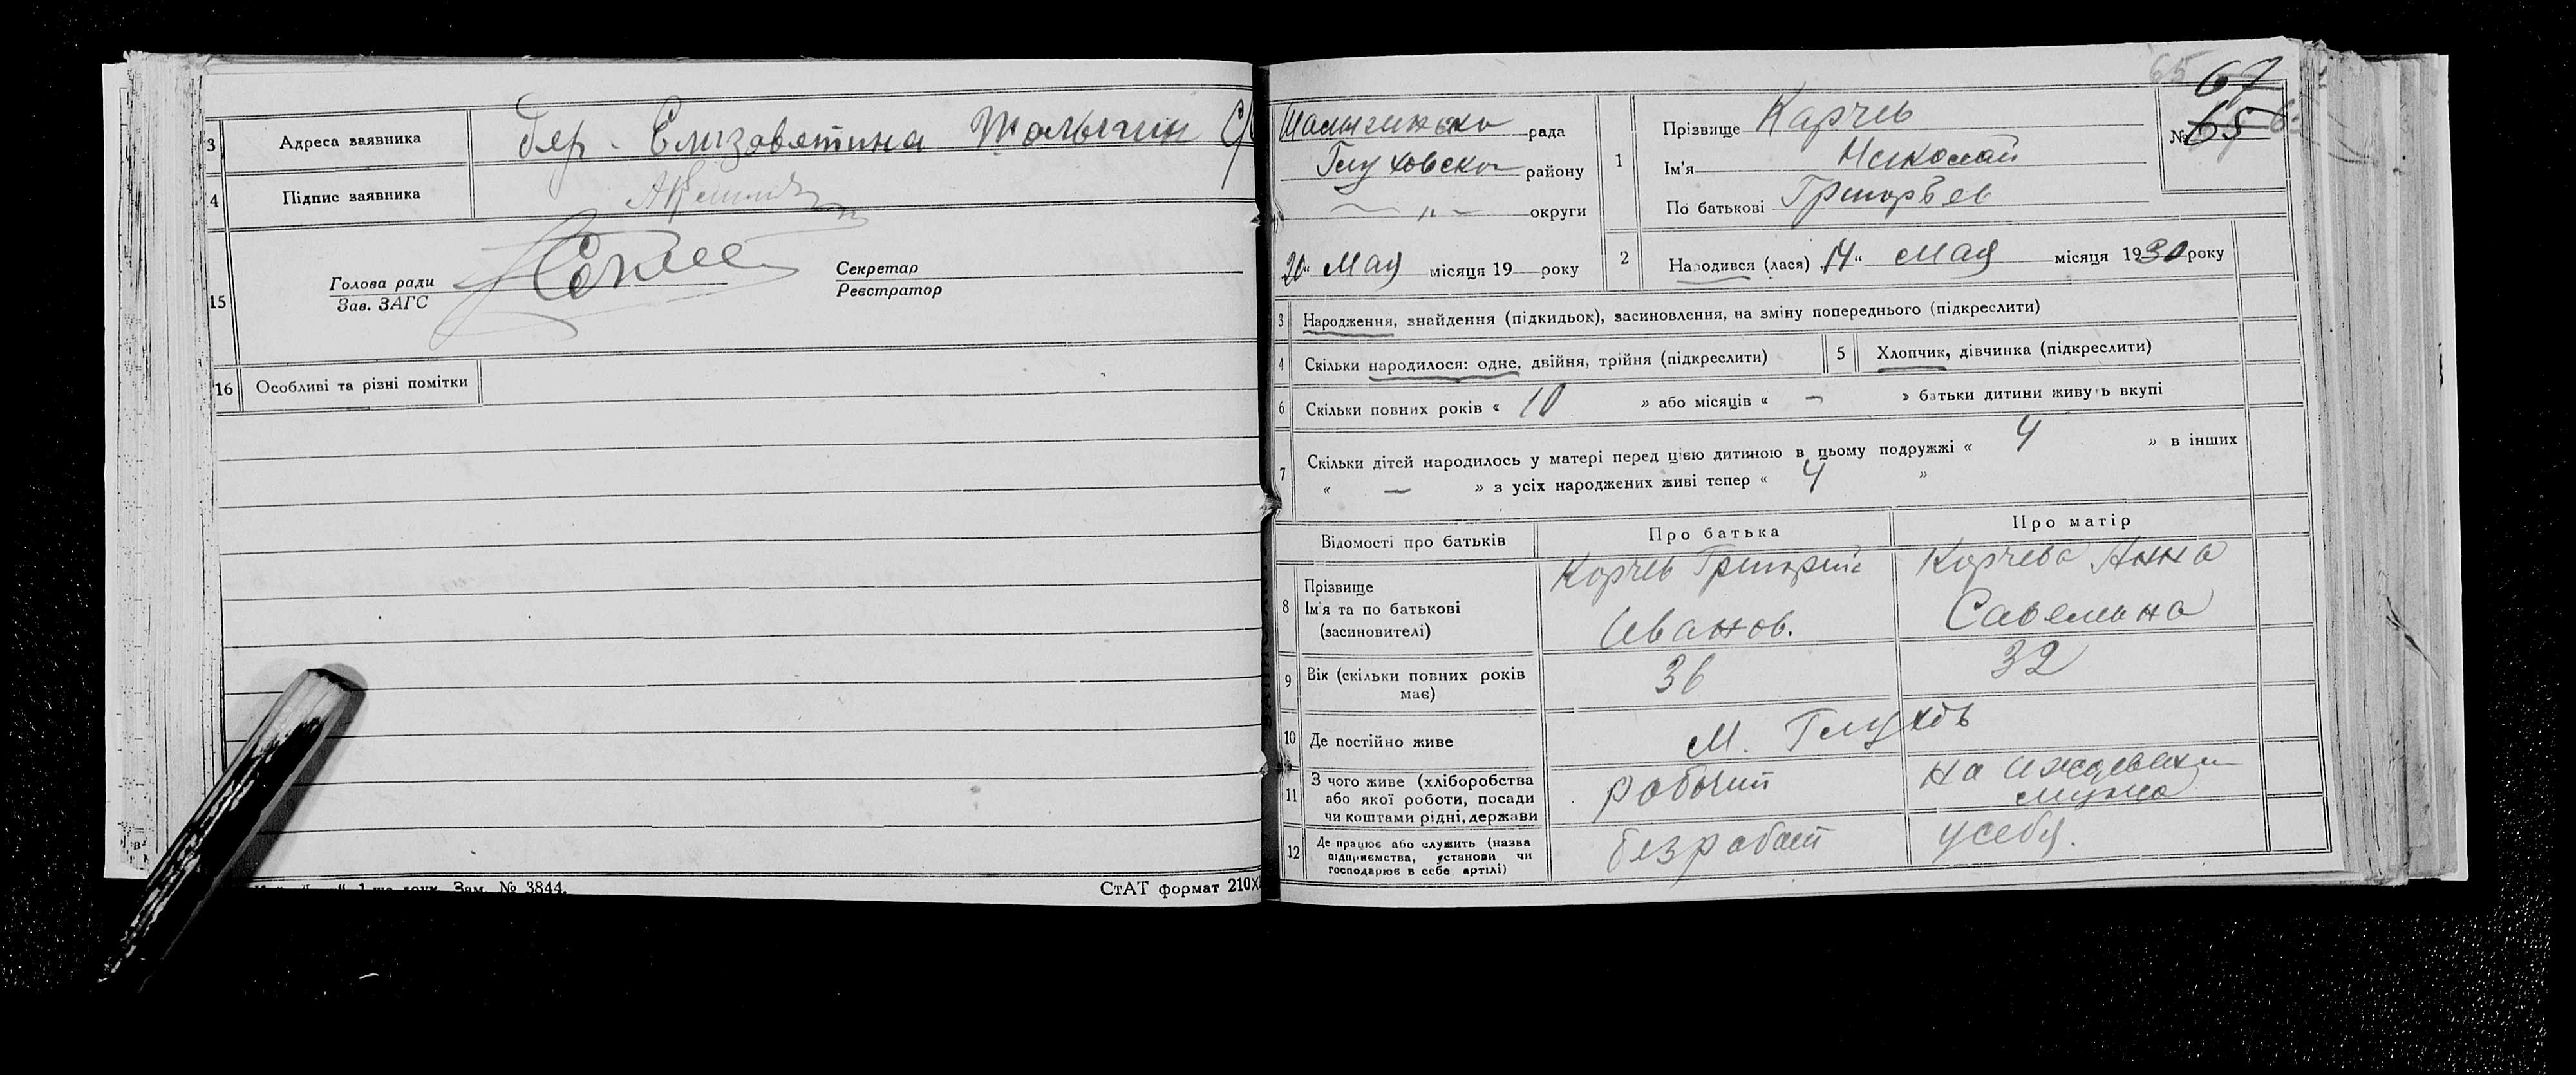 3 Адреса заявника дер. Елизаветина Шалыгин С/
4 Підпис заявника
15 Голова ради
Зав. ЗАГС
Секретар
Реєстратор
16 Особливі та різні помітки
Зам. № 3844.
СтАТ формат 210х
65
67
№ 65
Шалыгинско рада
Глуховско району
— „ — округи
20 " Мая місяця 19 року
1 Прізвище Карчев
Ім'я Николай
По батькові Григорьев
2 Народився (лася) 14 " мая місяця 1930 року
3 Народження, знайдення (підкидьок), засиновлення, на зміну попереднього (підкреслити)
4 Скільки народилося: одне, двійня, трійня (підкреслити)
5 Хлопчик, дівчинка (підкреслити)
6 Скільки повних років « 10 » або місяців « — » батьки дитини живуть вкупі
7 Скільки дітей народилось у матері перед цією дитиною в цьому подружжі « 4 » в інших
« — » з усіх народжених живі тепер « 4 »
Відомості про батьків
Про батька
Про матір
8 Прізвище
Ім'я та по батькові
(засиновителі)
Корчев Григорий
Иванов.
Корчева Анна
Савельина
9 Вік (скільки повних років
має)
36
32
10 Де постійно живе
М. Глухов
11 З чого живе (хліборобства
або якої роботи, посади
чи коштами рідні, держави
рабочий
на иждевении
мужа
12 Де працює або служить (назва
підприємства, установи чи
господарює в себе, артілі)
безработ
у себя.